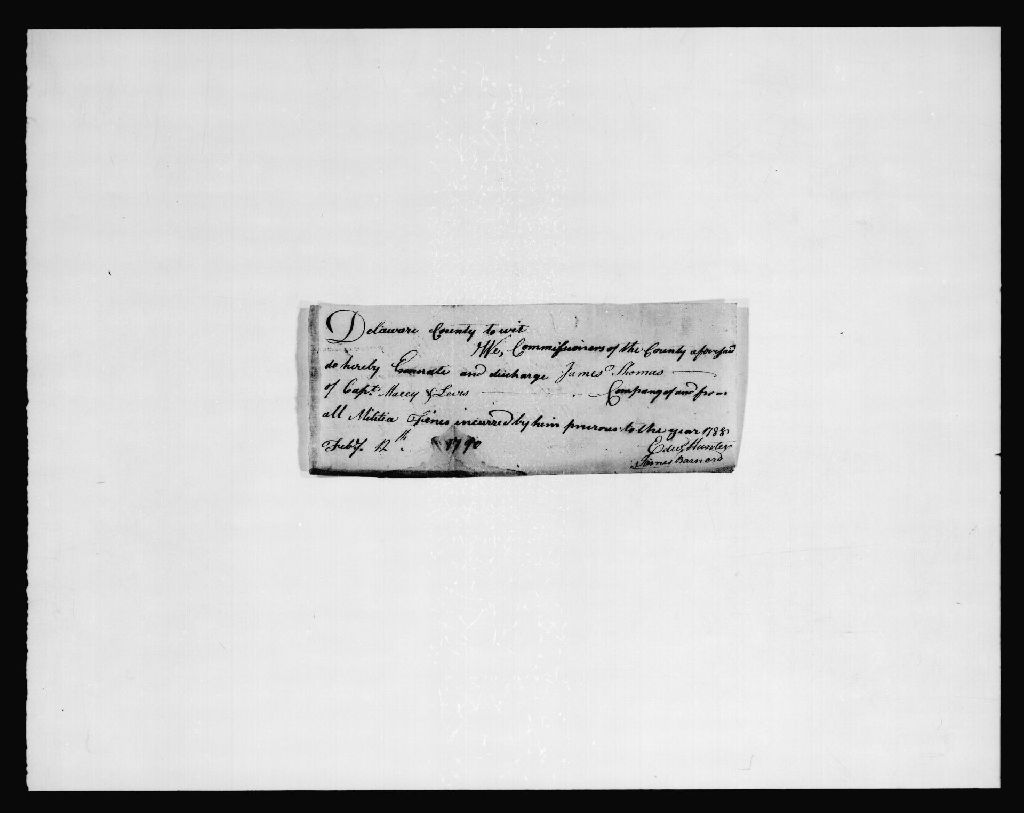 Delaware County to wit
We, Commissioners of the County aforesaid
do hereby Exonerate and discharge James Thomas
of Capt. Maccy & Lewis Company of and from
all Militia Fines incurred by him previous to the year 1788
Feby. 12th. 1790
Edwd. Hunter
James Barnard